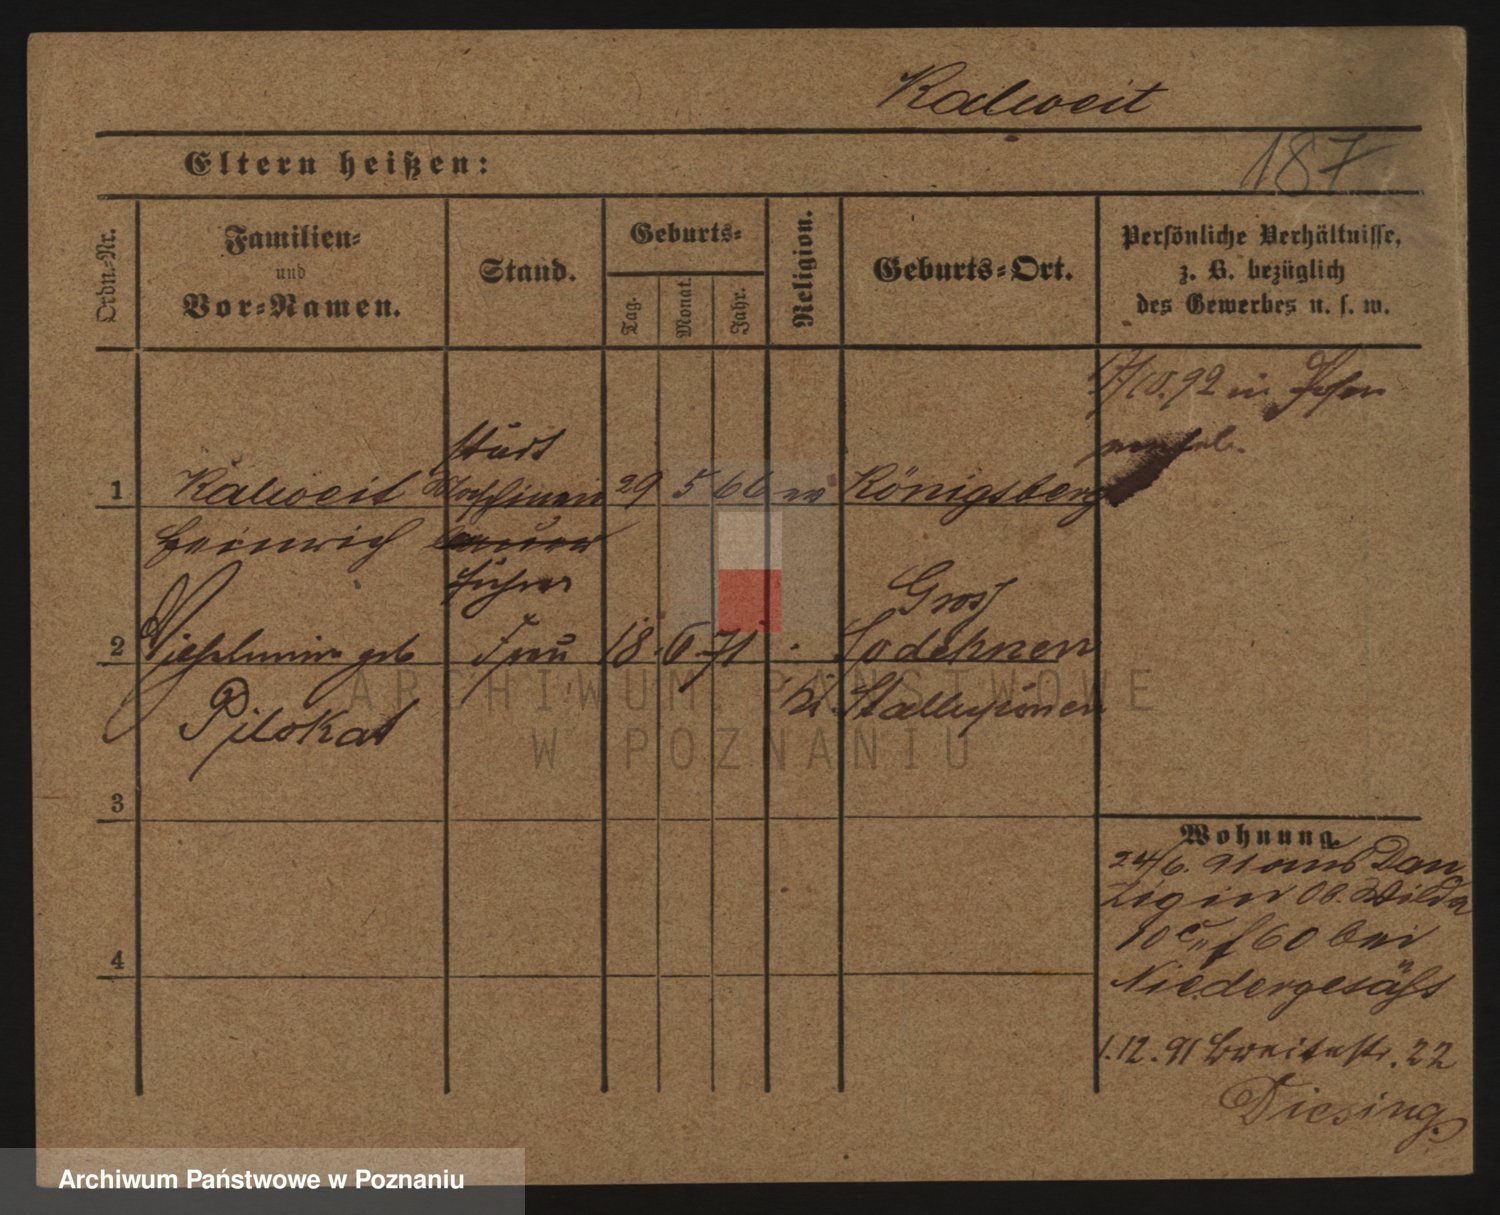 Kalweit
187
Eltern heißen:
Ordn.-Nr.
Familien-
und
Vor-Namen.
Stand.
Geburts-
Tag.
Monat.
Jahr.
Religion.
Geburts-Ort.
Persönliche Verhältnisse,
z. B. bezüglich
des Gewerbes u. s. w.
17/10.92 in Posen
1 Kalweit 29 5 66 ev Königsberg
Heinrich
führer
Groß
2 Wilhelmine geb Frau 18 6 71 Sodehnen
Pilokat Stallupönen
3
4
Wohnung.
24/6. 91 aus Dan
zig in Ob. Wilda
60 bei
Niedergesäß
1.12.91 Breitestr. 22
Diesing
ARCHIWUM PAŃSTWOWE
W POZNANIU
Archiwum Państwowe w Poznaniu